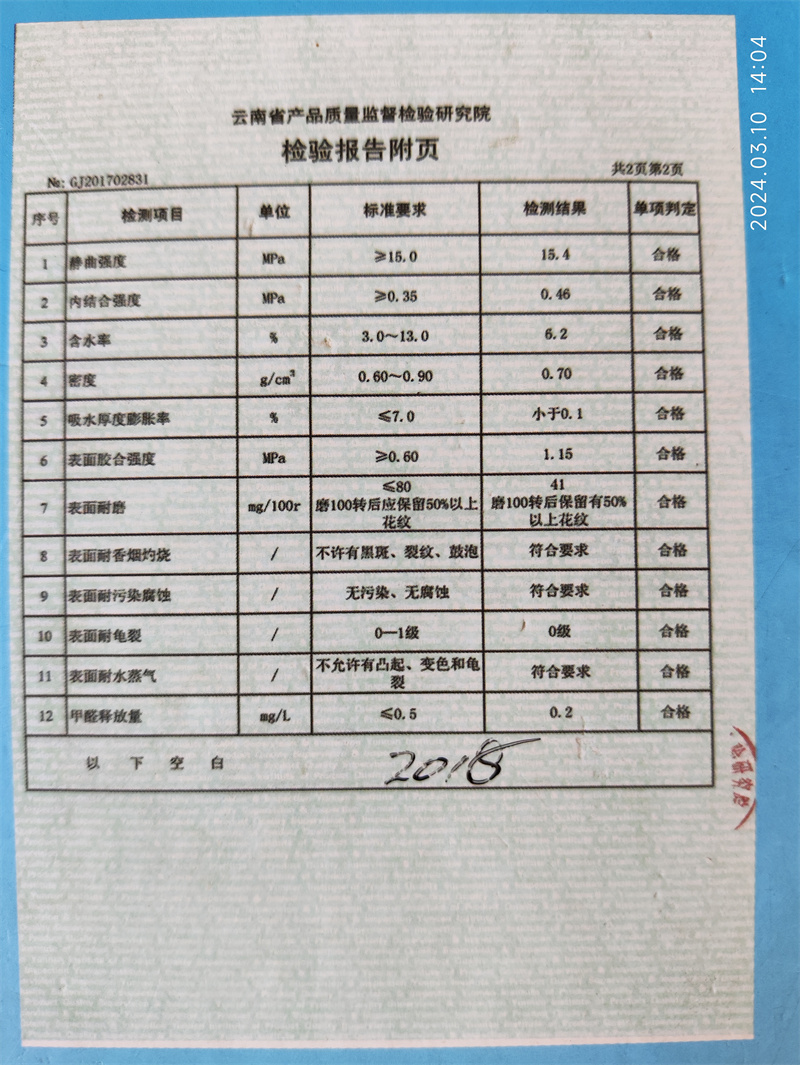 2024.03.10 14:04
云南省产品质量监督检验研究院
检验报告附页
№: GJ201702831
共2页第2页
序号 检测项目 单位 标准要求 检测结果 单项判定
1 静曲强度 MPa ≥15.0 15.4 合格
2 内结合强度 MPa ≥0.35 0.46 合格
3 含水率 % 3.0～13.0 6.2 合格
4 密度 g/cm³ 0.60～0.90 0.70 合格
5 吸水厚度膨胀率 % ≤7.0 小于0.1 合格
6 表面胶合强度 MPa ≥0.60 1.15 合格
7 表面耐磨 mg/100r
≤80
磨100转后应保留50%以上
花纹
41
磨100转后保留有50%
以上花纹
合格
8 表面耐香烟灼烧 / 不许有黑斑、裂纹、鼓泡 符合要求 合格
9 表面耐污染腐蚀 / 无污染、无腐蚀 符合要求 合格
10 表面耐龟裂 / 0—1级 0级 合格
11 表面耐水蒸气 /
不允许有凸起、变色和龟
裂
符合要求 合格
12 甲醛释放量 mg/L ≤0.5 0.2 合格
以下空白
2018